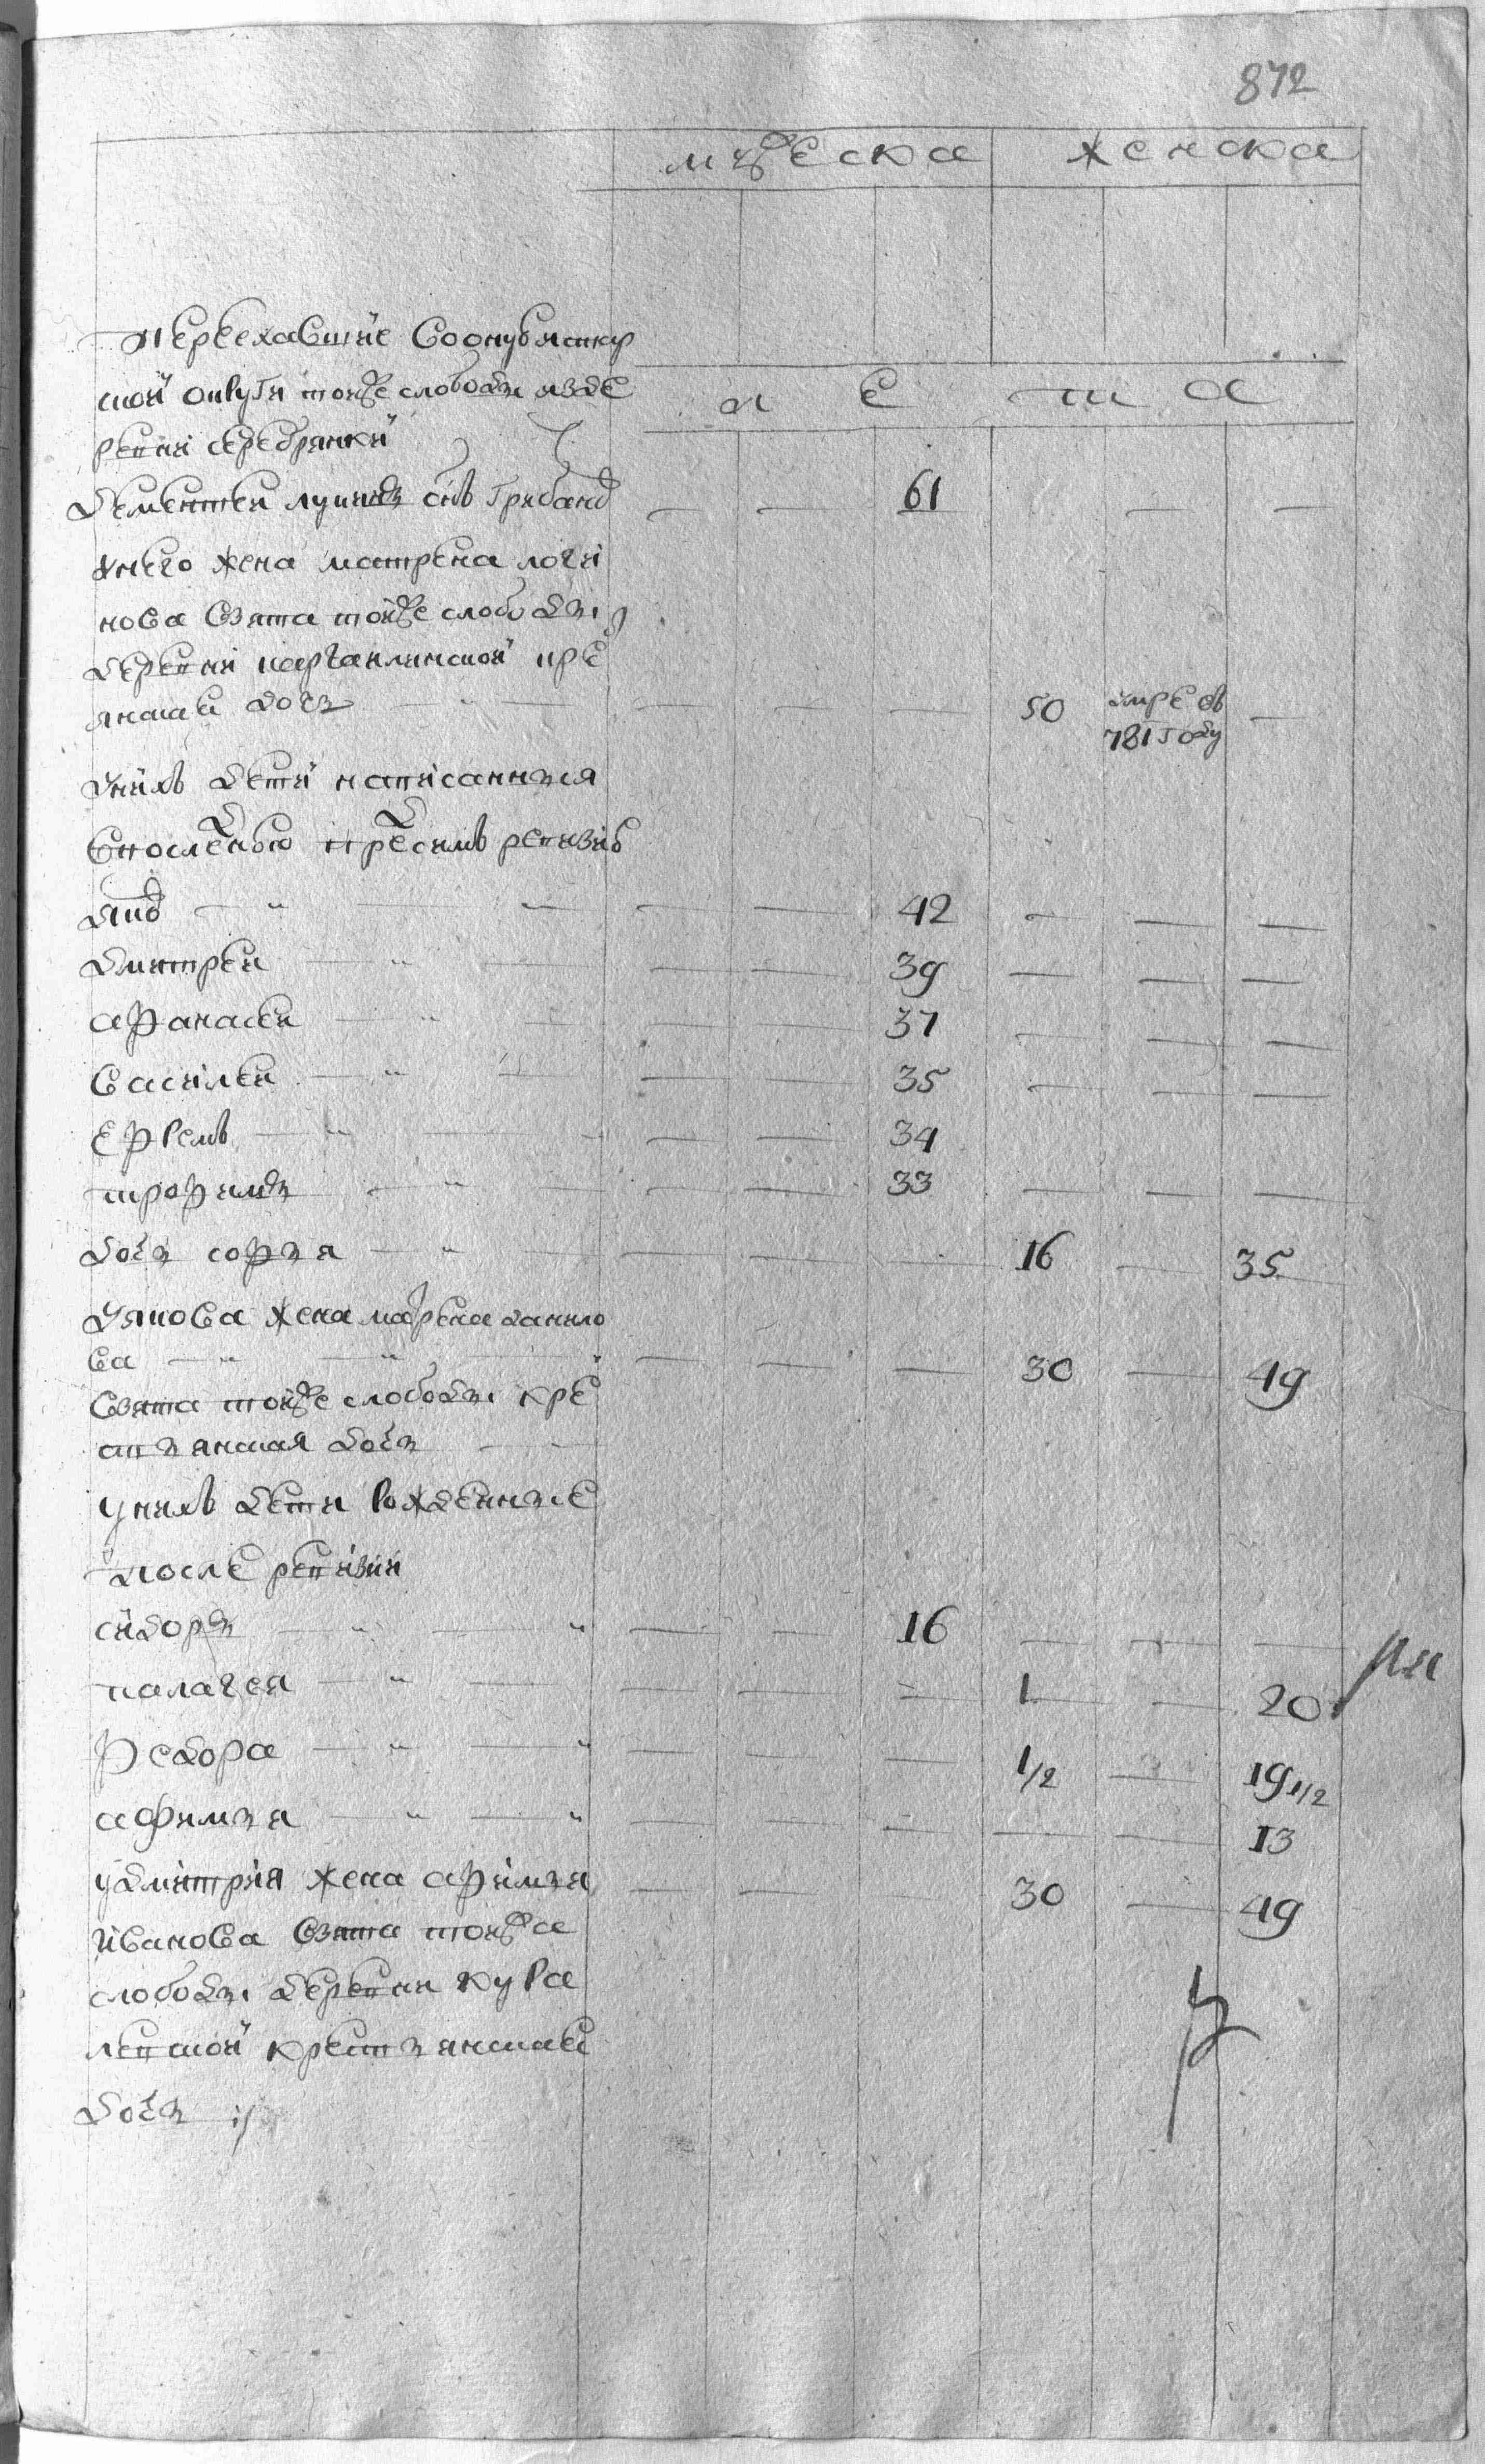 872
мужеска женска
переехавшие
ской округи тояже слободы изде
ревни серебрянки
лета
дементеи лукинъ снъ грибанов 61
унего жена матрена логи
нова взята тояже слободы
деревни кре
янская дочь 50 умре въ 781 году
унихъ дети написанныя
впоследнюю предсимъ ревизию
яковъ 42
дмитреи 39
афанасеи 37
василеи 35
ефремъ 34
трофимъ 33
дочь софья 16 35
уякова жена марфена данило
ва 30 49
взята тояже слободы кре
стьянская дочь
унихъ дети рожденные
после ревизии
сидоръ 16
палагея 1 20
федора 1/2 19 1/2
афимья 13
удмитрия жена афимья 30 49
иванова взята тояжа
слободы деревни кура
левской крестьянская
дочь